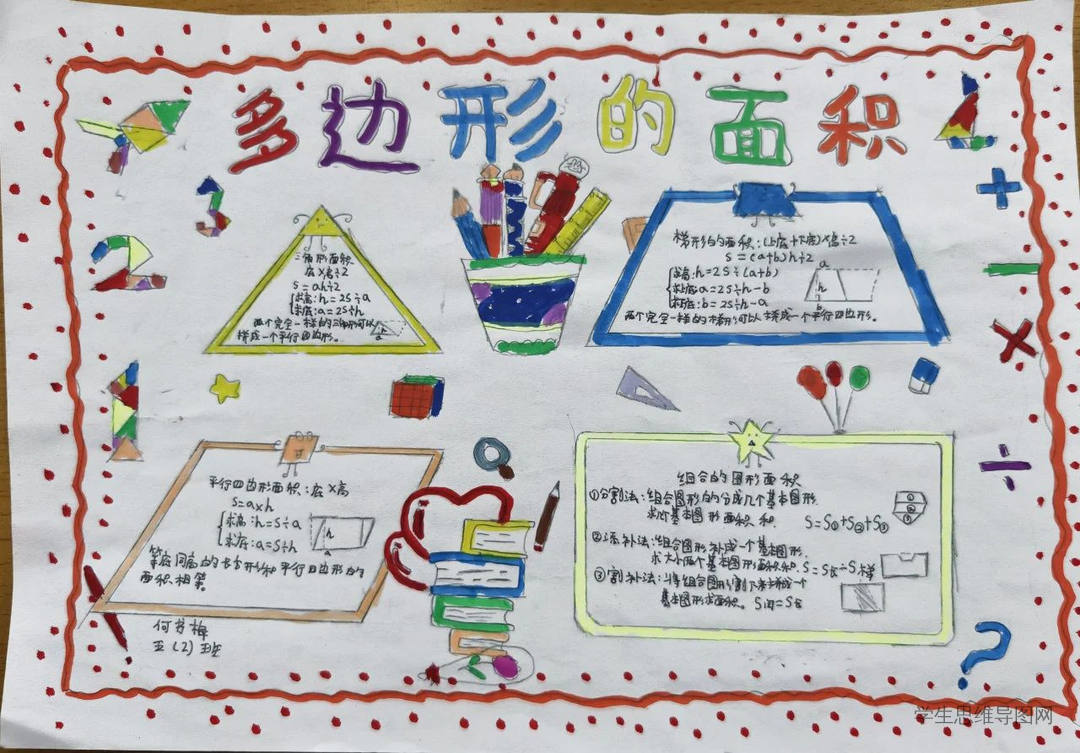 多边形的面积
三角形面积
底×高÷2
S=ah÷2
求高:h=2S÷a
求底:a=2S÷h
两个完全一样的三角形可以
拼成一个平行四边形。
h
a
梯形的面积:(上底+下底)×高÷2
S=(a+b)h÷2
求高:h=2S÷(a+b)
求上底:a=2S÷h-b
求下底:b=2S÷h-a
两个完全一样的梯形可以拼成一个平行四边形。
a
h
b
平行四边形面积:底×高
S=a×h
求高:h=S÷a
求底:a=S÷h
等底同高的长方形和平行四边形的
面积相等。
h
a
何芳梅
五(2)班
组合的图形面积
①分割法:组合图形的分成几个基本图形.
求几个基本图形面积和.
S=S①+S②+S③
①
②
③
②添补法:组合图形补成一个基本图形.
求大小两个基本图形面积和.S=S长÷S梯
③割补法:将组合图形割下来拼成一个
基本图形求面积。
3
2
1
4
+
-
×
÷
?
学生思维导图网